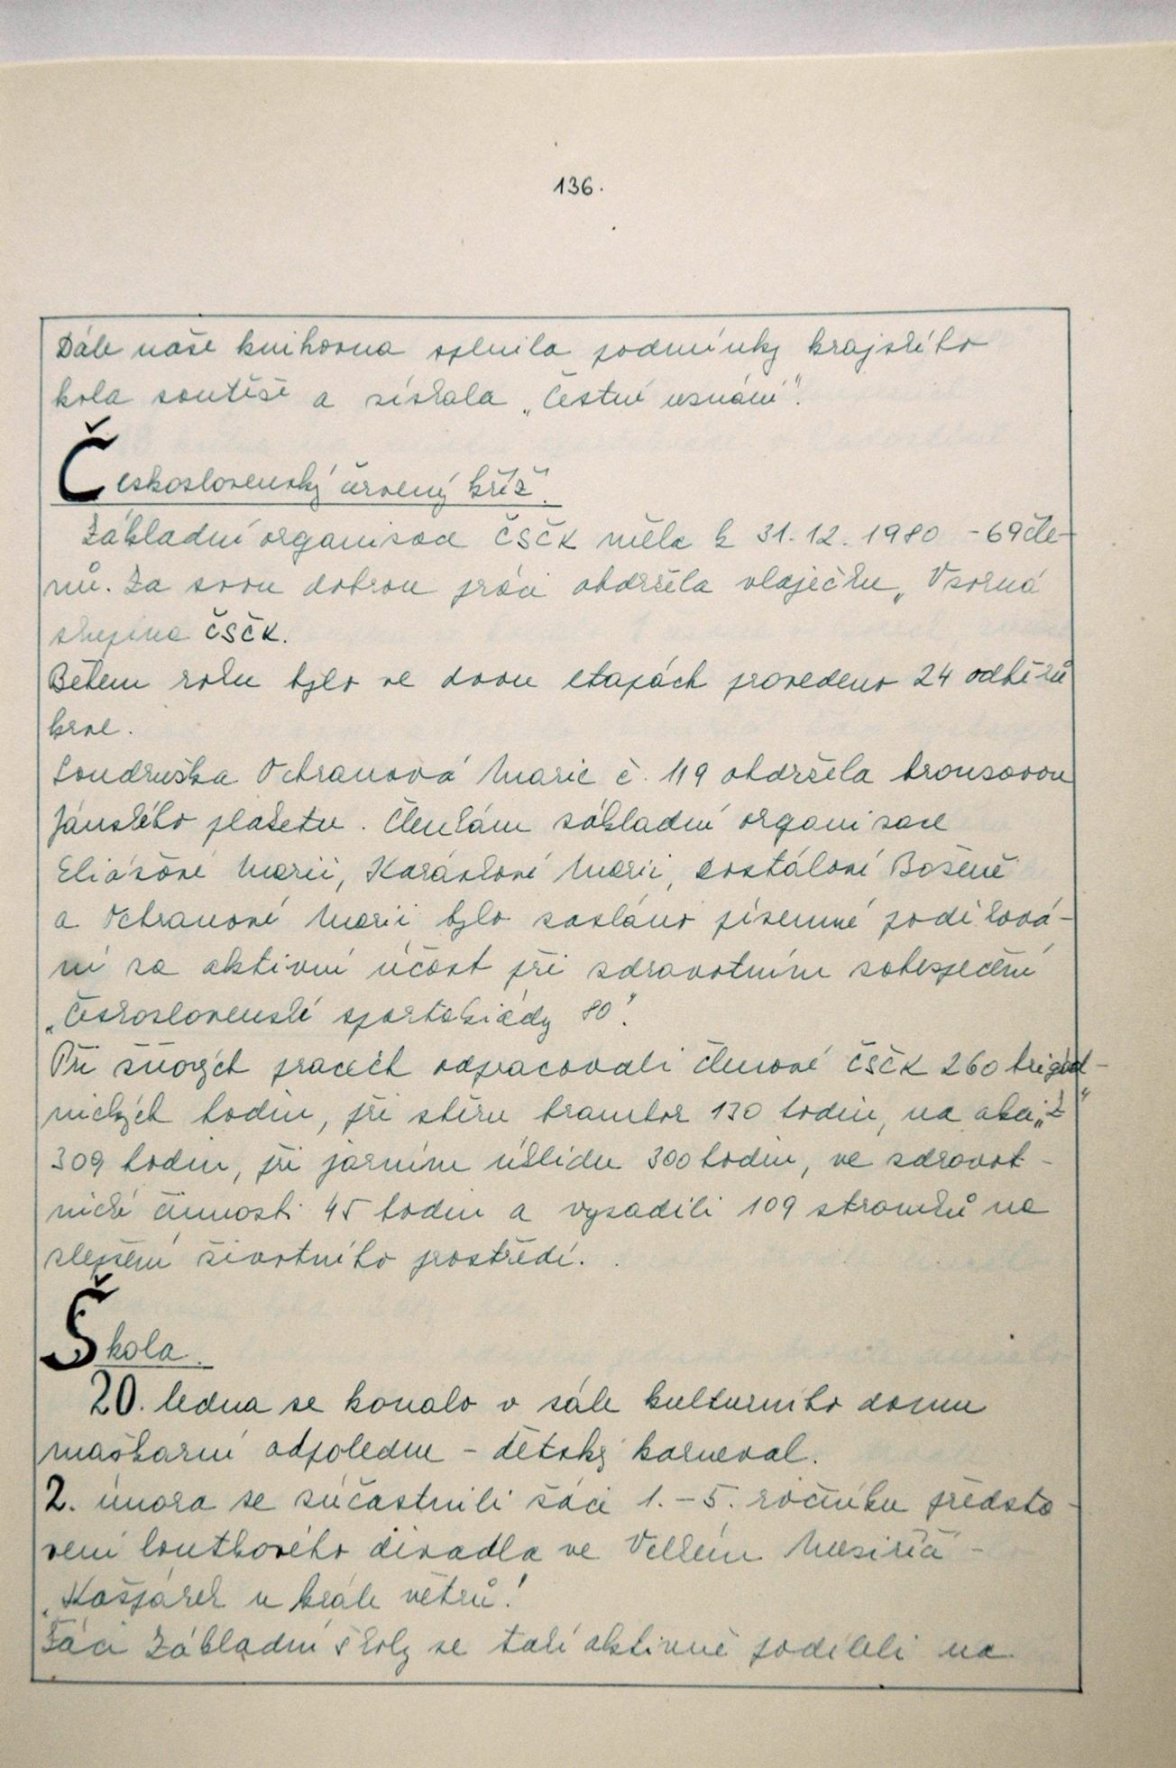 136.
Dále naše knihovna splnila podmínky krajského
kola soutěže a získala „Čestné uznání".
Československý červený kříž.
Základní organisace ČSČK měla k 31.12.1980 - 69 čle-
nů. Za svou dobrou práci obdržela vlaječku „Vzorná
skupina ČSČK.
Během roku bylo ve dvou etapách provedeno 24 odběrů
krve.
Soudružka Ochranová Marie č. 119 obdržela bronzovou
Jánského plaketu. Členkám základní organisace
Eliášové Marii, Karáskové Marii, Dostálové Boženě
a Ochranové Marii bylo zasláno písemné poděková-
ní za aktivní účast při zdravotním zabezpečení
„Československé spartakiády 80".
Při žňových pracech odpracovali členové ČSČK 260 brigád-
nických hodin, při sběru brambor 130 hodin, na akci „Z"
309 hodin, při jarním úklidu 300 hodin, ve zdravot-
nické činnosti 45 hodin a vysadili 109 stromků na
zlepšení životního prostředí.
Škola.
20. ledna se konalo v sále kulturního domu
maškarní odpoledne - dětský karneval.
2. února se zúčastnili žáci 1.-5. ročníku předsta-
vení loutkového divadla ve Velkém Meziříčí -
„Kašpárek u krále větrů."
Žáci Základní školy se také aktivně podíleli na